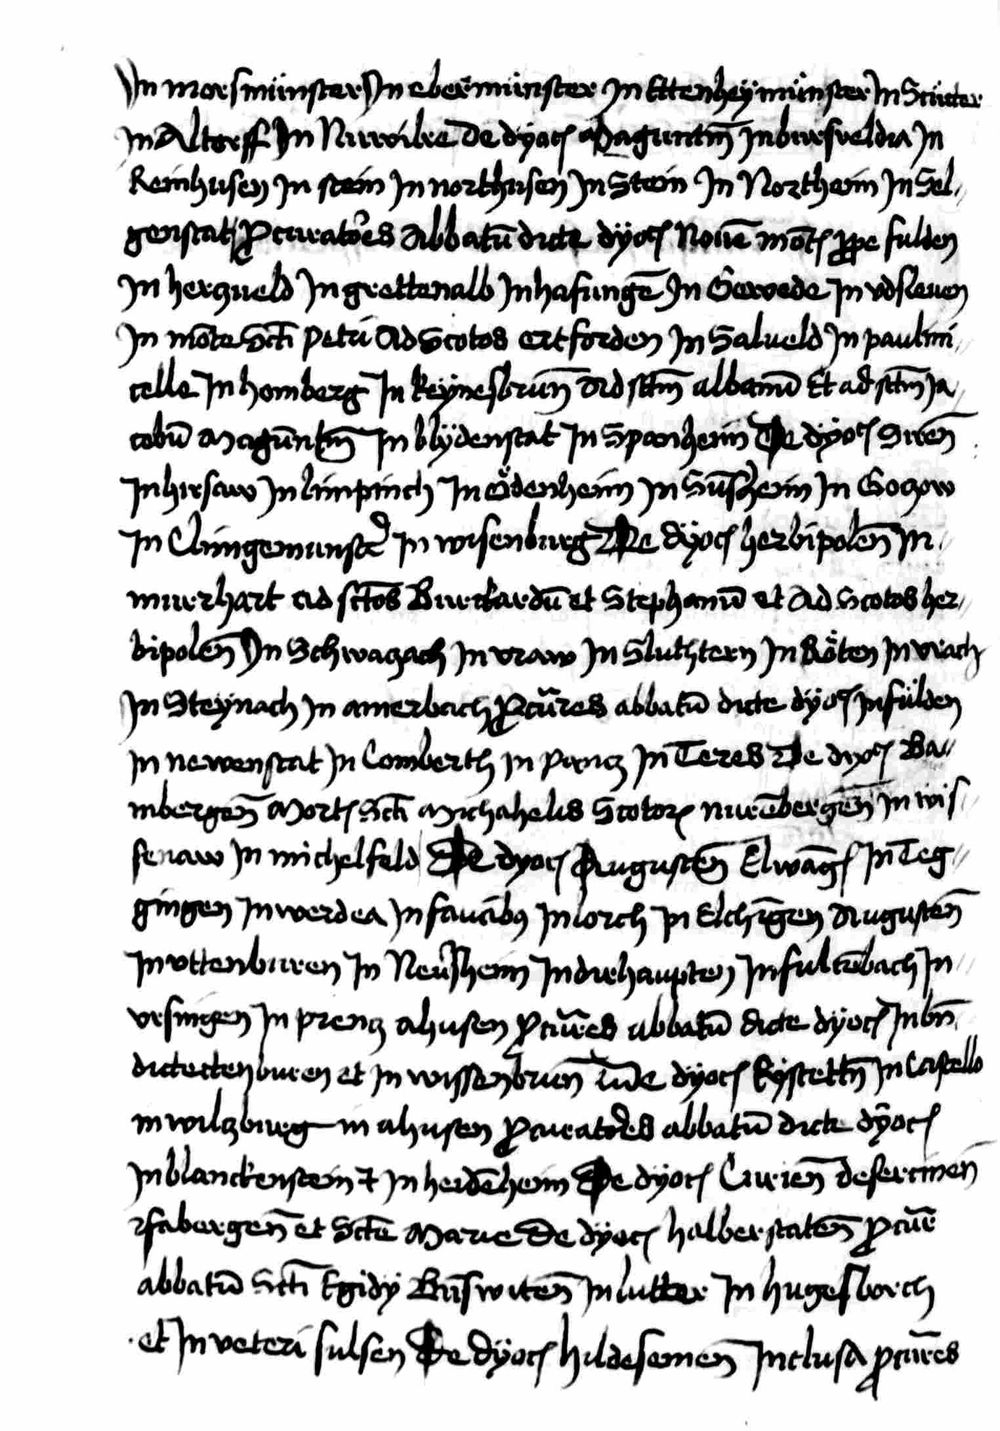 In morsmünster In ebermünster In Ettenheÿmünster In Scutter
In Altorff In Nuwilre De dÿoc͡ Maguntin̄ In bursveldia In
Reinhusen In stein In northusen In Stein In Northeim In Sel-
genstat Procuratores Abbatū dicte dÿoc͡ Noue mōt͡ prope fulden
In herßueld In grettenalb In hafungē In Gerrode In vdsleuen
In mōte Scti Petri Ad Scotos ertforden In Salueld In paulini
celle In homberg In keÿnesbrun̄ Ad sctm̄ albanū Et ad sctm̄ Ja
cobū Magūntin̄ In blÿdenstat In Spanheim De dÿoc͡ Siren̄
In hirsaw In limpurch In ödenheim In Sūsheim In Goczow
In Clingemunster In wisenburg De dÿoc͡ herbipolen̄ In
murrhart ad sctōs Burckardū et Stephanū et Ad Scotos her-
bipolen̄ In Schwarzach In vraw In Sluchtern In Röten In vrach
In Steÿnach In amerbach Procūres abbatū dicte dÿoc͡ In fülden
In newenstat In Comberth In pancz In Teres De dioc͡ Ba-
mbergen̄ Mont͡ Scti Michahelis Scotor͡ nurēbergen̄ In wis
senaw In michelfeld De dÿoc͡ Augusten̄ Elwāg͡ In Teg-
gingen In werdea In faucibus In lorch In Elchīgen Augusten̄
In vttenburen In Neresheim In dirhaupten In fultēbach In
vrsingen In prencz ahusen procūres abbatū dicte dÿoc͡ In bn̄
dictectenburen et In wissenbrun̄ In De dÿoc͡ Eÿstettn̄ In Castello
in wilczburg in ahusen Procuratores abbatū dicte dÿoc͡
In blanckenstein et In heidēheim De dÿoc͡ Curien̄ desertinen̄
fabergen̄ et Scte Marie De dÿoc͡ halberstaten̄ Procūr
abbatū Scti Egidÿ Brūswiten̄ In lutter In hugesborch
et In veteri sulsen De dÿoc͡ hildesemen̄ In clusa procūres